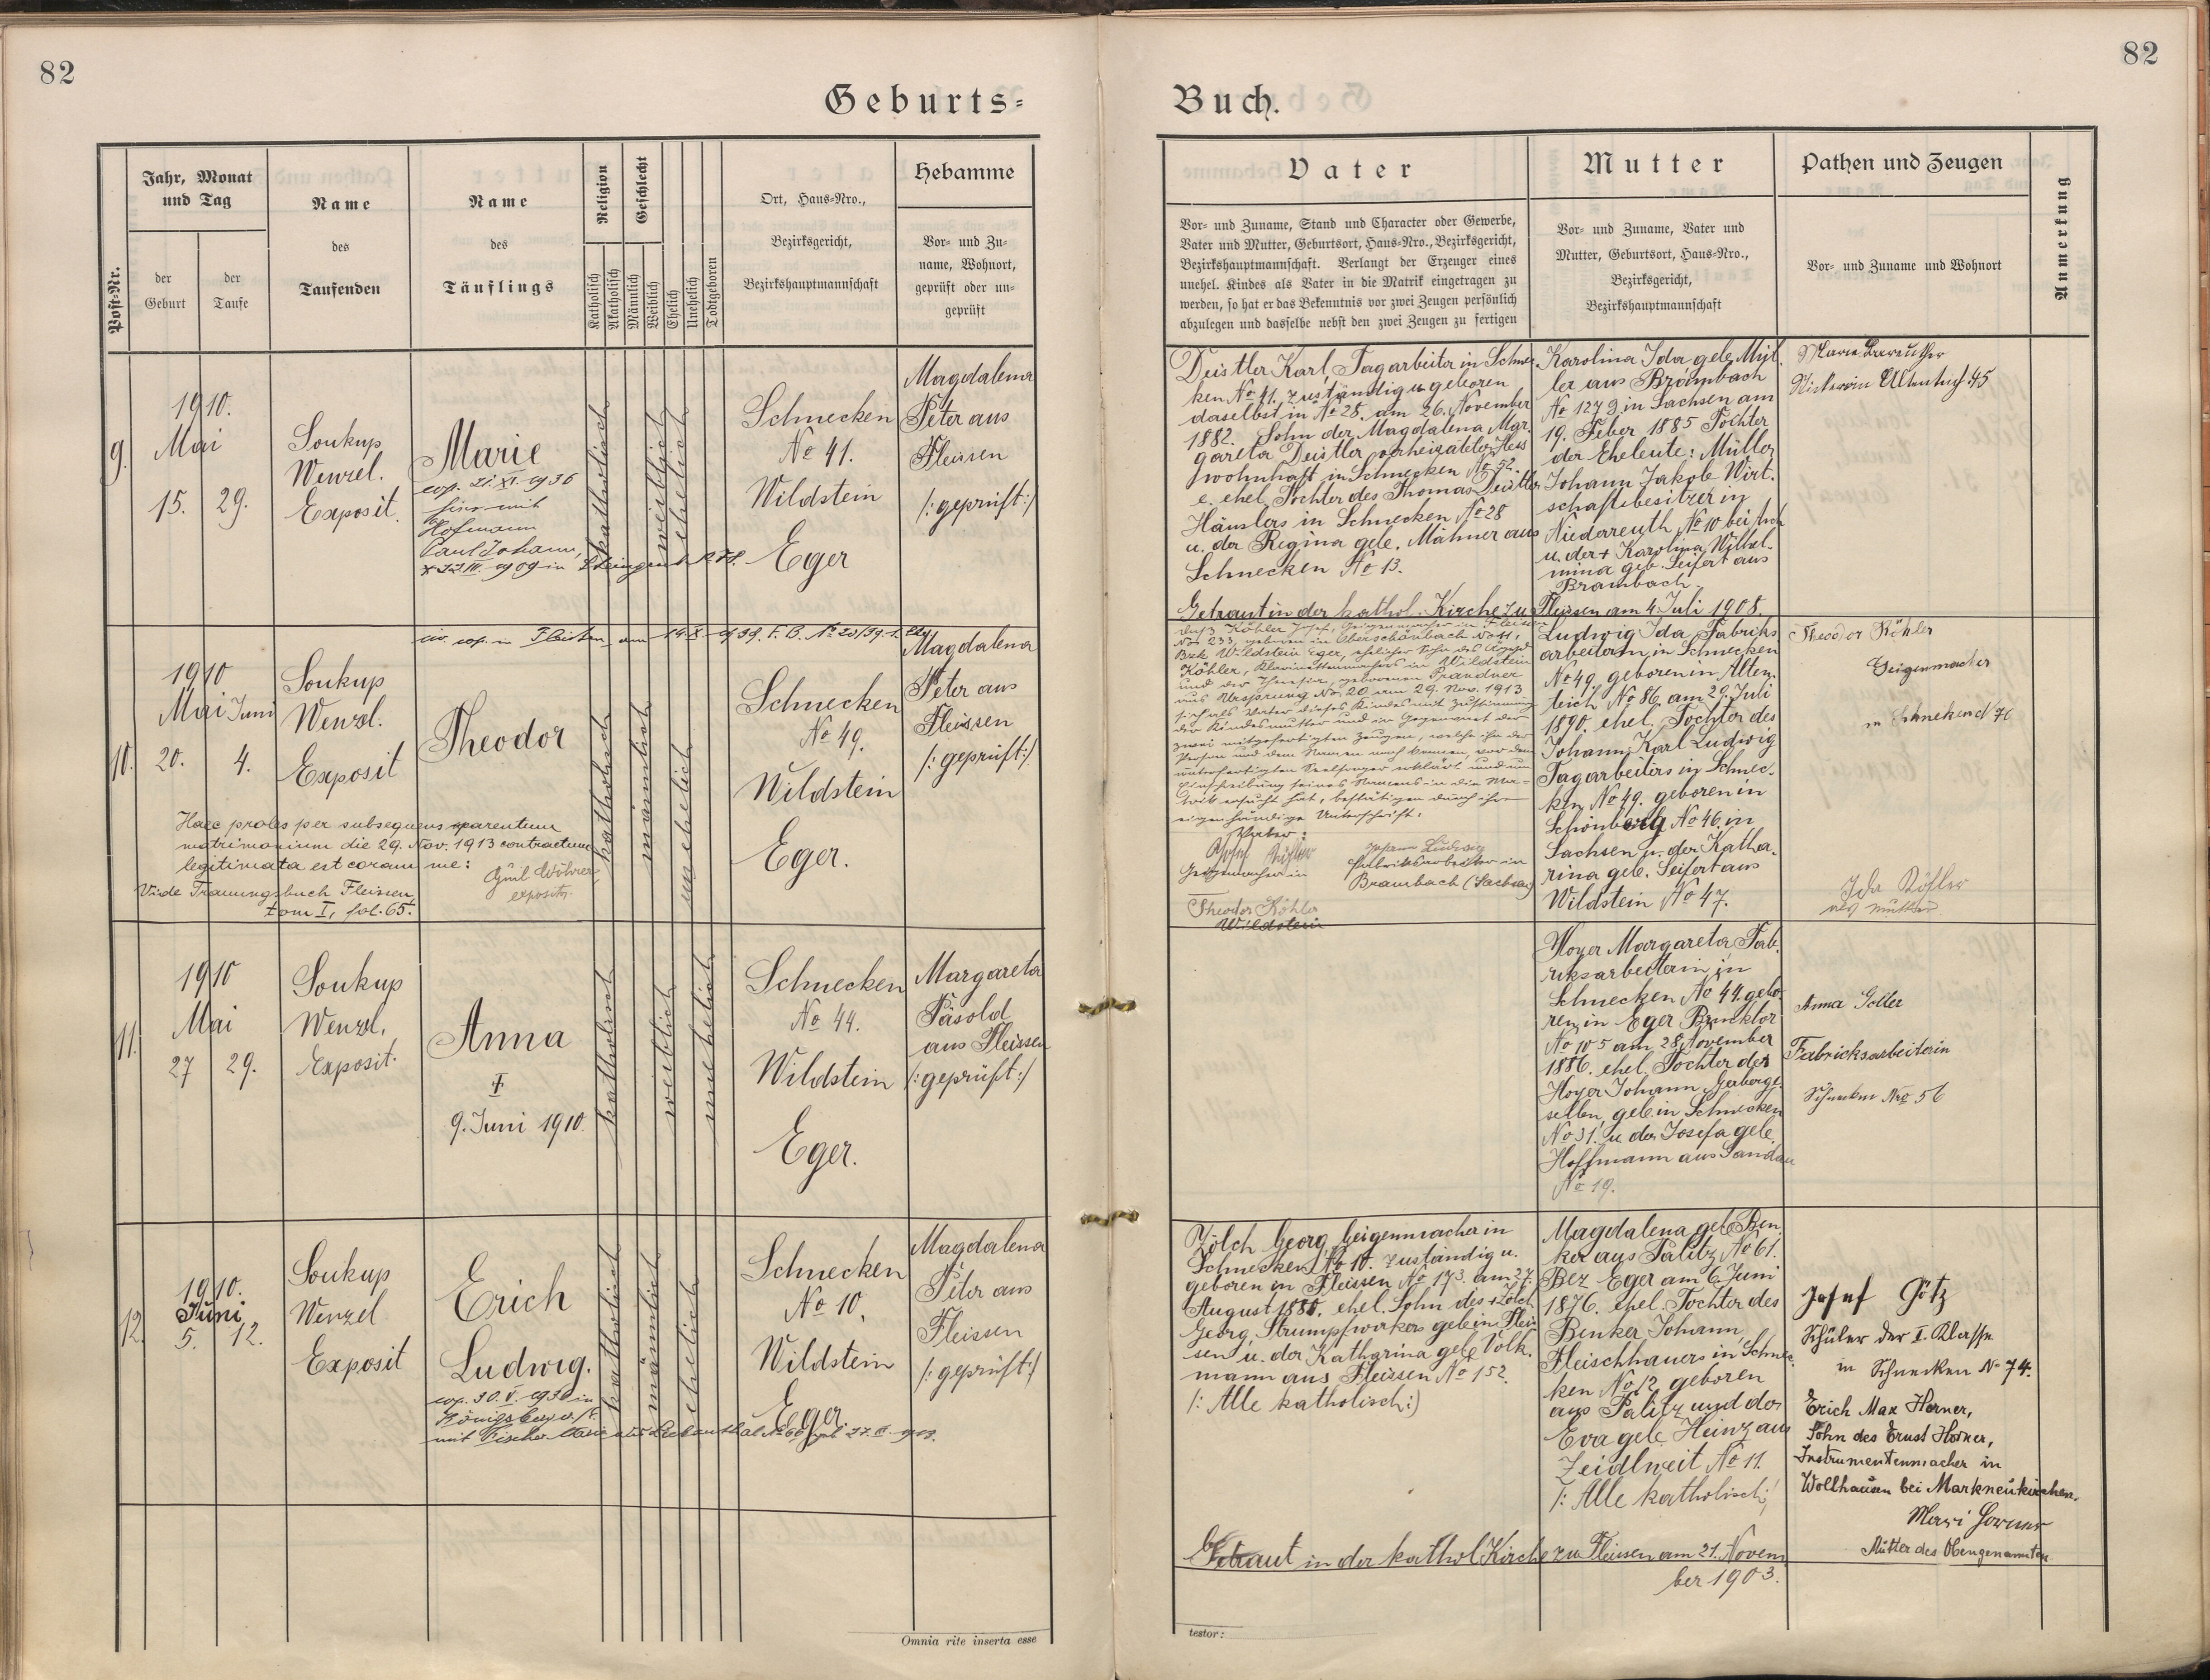 82
82
Geburts=
Buch.
Post-Nr.
Jahr, Monat
und Tag
der
Geburt
der
Taufe
Name
des
Taufenden
Name
des
Täuflings
Religion
Katholisch
Akatholisch
Geschlecht
Männlich
Weiblich
Ehelich
Unehelich
Todtgeboren
Ort, Haus-Nro.,
Bezirksgericht,
Bezirkshauptmannschaft
Hebamme
Vor- und Zu-
name, Wohnort,
geprüft oder un-
geprüft
Vater
Vor- und Zuname, Stand und Character oder Gewerbe,
Vater und Mutter, Geburtsort, Haus-Nro., Bezirksgericht,
Bezirkshauptmannschaft. Verlangt der Erzeuger eines
unehel. Kindes als Vater in die Matrik eingetragen zu
werden, so hat er das Bekenntnis vor zwei Zeugen persönlich
abzulegen und dasselbe nebst den zwei Zeugen zu fertigen
Mutter
Vor- und Zuname, Vater und
Mutter, Geburtsort, Haus-Nro.,
Bezirksgericht,
Bezirkshauptmannschaft
Pathen und Zeugen
Vor- und Zuname und Wohnort
Anmerkung
9.
1910.
Mai
15. 29.
Soukup
Wenzel.
Exposit.
Marie
cop. 21. XI. 1936
hier mit
Hofmann
Paul Johann,
katholisch
weiblich
ehelich
Schnecken
No 41.
Wildstein
Eger
Magdalena
Peter aus
Fleissen
/: geprüft :/
Deistler Karl, Tagarbeiter in Schnec-
ken No 41. zuständig u. geboren
daselbst in No 28. am 26. November
1882. Sohn der Magdalena Mar-
gareta Deistler verheiratete Hess
wohnhaft in Schnecken No 52.
e. ehel. Tochter des Thomas Deistler
Häuslers in Schnecken No 28
u. der Regina geb. Mähner aus
Schnecken No 13.
Getraut in der kathol. Kirche zu Fleissen am 4. Juli 1908.
Karolina Ida geb. Mül-
ler aus Brambach
No 127 g in Sachsen am
19. Feber 1885 Tochter
der Eheleute: Müller
Johann Jakob Wirt-
schaftsbesitzer in
Niederreuth No 10 bei Asch
u. der + Karolina Wilhel-
mina geb. Seifert aus
Brambach.
Marie
45
10.
1910
Mai Juni
20. 4.
Soukup
Wenzl.
Exposit
Theodor
katholisch
männlich
unehelich
Schnecken
No 49.
Wildstein
Eger.
Magdalena
Peter aus
Fleissen
/: geprüft :/
Haec proles per subsequens parentum
matrimonium die 29. Nov. 1913 contractum
legitimata est coram me:
Vide Trauungsbuch Fleissen,
tom I, fol. 65.
Emil Wöhrer
expositus
Daß Köhler Josef, Geigenmacher in Fleissen
No 233, geboren in Oberschönbach No 11,
Bzk Wildstein Eger, ehelicher Sohn des
Köhler, Klarinettenmachers in Wildstein
und der Theresia, geborenen Brandner
aus Ursprung No 20 am 29. Nov. 1913
sich als Vater dieses Kindes mit Zustimmung
der Kindesmutter und in Gegenwart der
zwei mitgefertigten Zeugen, welche ihn der
Person und dem Namen nach kennen, vor dem
unterfertigten Seelsorger erklärt und um
Einschreibung seines Namens in die Ma-
trik ersucht hat, bestätigen durch ihre
eigenhändige Unterschrift:
Vater:
Josef Köhler
Geigenmacher in
Johann Ludwig
Fabriksarbeiter in
Brambach (Sachsen)
Theodor Köhler
Wildstein
Ludwig Ida Fabriks-
arbeiterin in Schnecken
No 49. geboren in Alten-
teich No 86. am 29. Juli
1890. ehel. Tochter des
Johann Karl Ludwig
Tagarbeiters in Schnec-
ken No 49. geboren in
Schönberg No 46. in
Sachsen u. der Katha-
rina geb. Seifert aus
Wildstein No 47.
Theodor Köhler
Geigenmacher
Ida Köhler
als Mutter
11.
1910
Mai
27 29.
Soukup
Wenzl.
Exposit.
Anna
†
9. Juni 1910
katholisch
weiblich
unehelich
Schnecken
No 44.
Wildstein
Eger.
Margareta
Päsold
aus Fleissen
/: geprüft :/
Hoyer Margareta Fab-
riksarbeiterin in
Schnecken No 44. gebo-
ren in Eger Brucktor
No 105 am 28. November
1886. ehel. Tochter des
Hoyer Johann Gerberge-
sellen, geb. in Schnecken
No 31. u. der Josefa geb.
Hoffmann aus Sandau
No 19.
Anna Goller
Fabricksarbeiterin
Schnecken Nro 56
12.
1910.
Juni
5. 12.
Soukup
Wenzel
Exposit
Erich
Ludwig.
cop. 30. V. 1938 in
Königsberg a./E.
mit Fischer Marie aus
katholisch
männlich
ehelich
Schnecken
No 10.
Wildstein
Eger
Magdalena
Peter aus
Fleissen
/: geprüft :/
Zölch Georg, Geigenmacher in
Schnecken No 10. zuständig u.
geboren in Fleissen No 173. am 27.
August 1880. ehel. Sohn des + Zölch
Georg, Strumpfwirkers geb. in Fleis-
sen u. der Katharina geb. Volk-
mann aus Fleissen No 152.
/: Alle katholisch :/
Getraut in der kathol. Kirche zu Fleissen am 21. Novem-
ber 1903.
Magdalena geb. Ben-
ker aus Palitz No 61.
Bez Eger am 6. Juni
1876. ehel. Tochter des
Benker Johann,
Fleischhauers in Schnec-
ken No 12 geboren
aus Palitz und der
Eva geb. Heinz aus
Zeidlweit No 11.
/: Alle katholisch :/
Josef Götz
Schüler der I. Klasse
in Schnecken No 74.
Erich Max Horner,
Sohn des Ernst Horner,
Instrumentenmacher in
Wollhausen bei Markneukirchen.
Mutter des Obengenannten
Omnia rite inserta esse
testor: